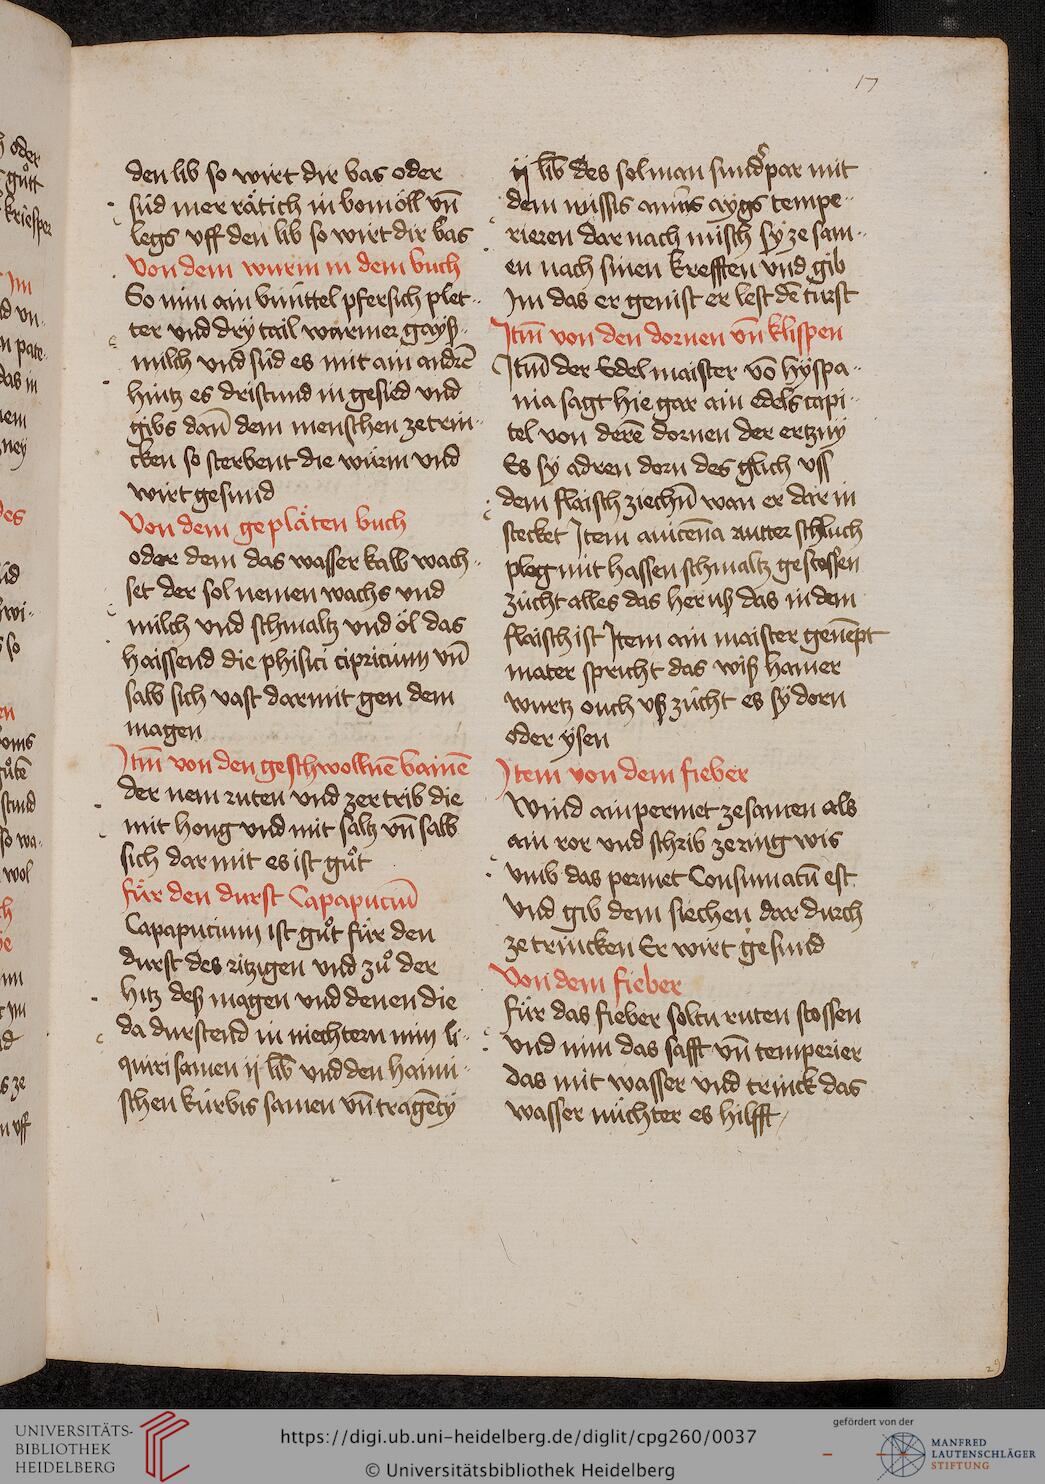 17
den lib so wirt dir bas oder
süd mer rätich in bomöll vn̄
legs vff den lib so wirt dir bas
Von dem wurm in dem buch
So nim ain bünttel pfersich plet¬
ter vnd dry tail warmer gayß¬
milch vnd süd es mit ain andrē
hintz es dristund in gesied vnd
gibs dan̄ dem menschen ze trin¬
cken so sterbent die würm vnd
wirt gesund
Von dem geplăten buch
oder dem das wasser kalb wach¬
set der sol nemen wachs vnd
milch vnd schmaltz vnd öl das
haissend die phisici cipricum vn̄
salb sich vast darmit gen dem
magen
Itm̄ von den geschwollnē bainē
der nem ruten vnd zertrib die
mit hong vnd mit saltz vn̄ salb
sich dar mit es ist gůt
für den durst Capapuciū
Capapucium ist gůt für den
durst des ritzigen vnd zů der
hitz deß magen vnd denen die
da durstend in niechtern nim li¬
quiri samen ij lib̄ vnd den haimi¬
schen kürbis samen vn̄ tragēty
ij lib̄ des sol man sund͛par mit
dem wissis ains aygs tempe¬
rieren dar nach misch sy ze sam¬
en nach sinen krefften vnd gib
Im das er genist er lest dē turst
Itm̄ von den dornen vn̄ klispen
Itm̄ der Edel maister vō hyspa¬
nia sagt hie gar ain edels capi¬
tel von derē dornen der ertzny
Es sy adren dorn des glich vss
dem flaisch ziechn̄ wan er dar in
stecket Item auicen̄a rutter schluch
pleg mit hassen schmaltz gestossen
zücht alles das her uß das in dem
flaisch ist Item ain maister genēpt
mater spricht das wiß hamer
wurtz ouch vß zücht es sy dorn
oder ysen
Item von dem fieber
Wind ain permet ze samen als
ain ror vnd schrib ze ring wis
vmb das permet Consumatū est
vnd gib dem siechen dar durch
ze trincken Er wirt gesund
Von dem fieber
für das fieber soltu ruten stossen
vnd nim das safft vn̄ temperier
das mit wasser vnd trinck das
wasser nüchter es hilfft
UNIVERSITÄTS-
BIBLIOTHEK
HEIDELBERG
https://digi.ub.uni-heidelberg.de/diglit/cpg260/0037
© Universitätsbibliothek Heidelberg
gefördert von der
MANFRED
LAUTENSCHLÄGER
STIFTUNG